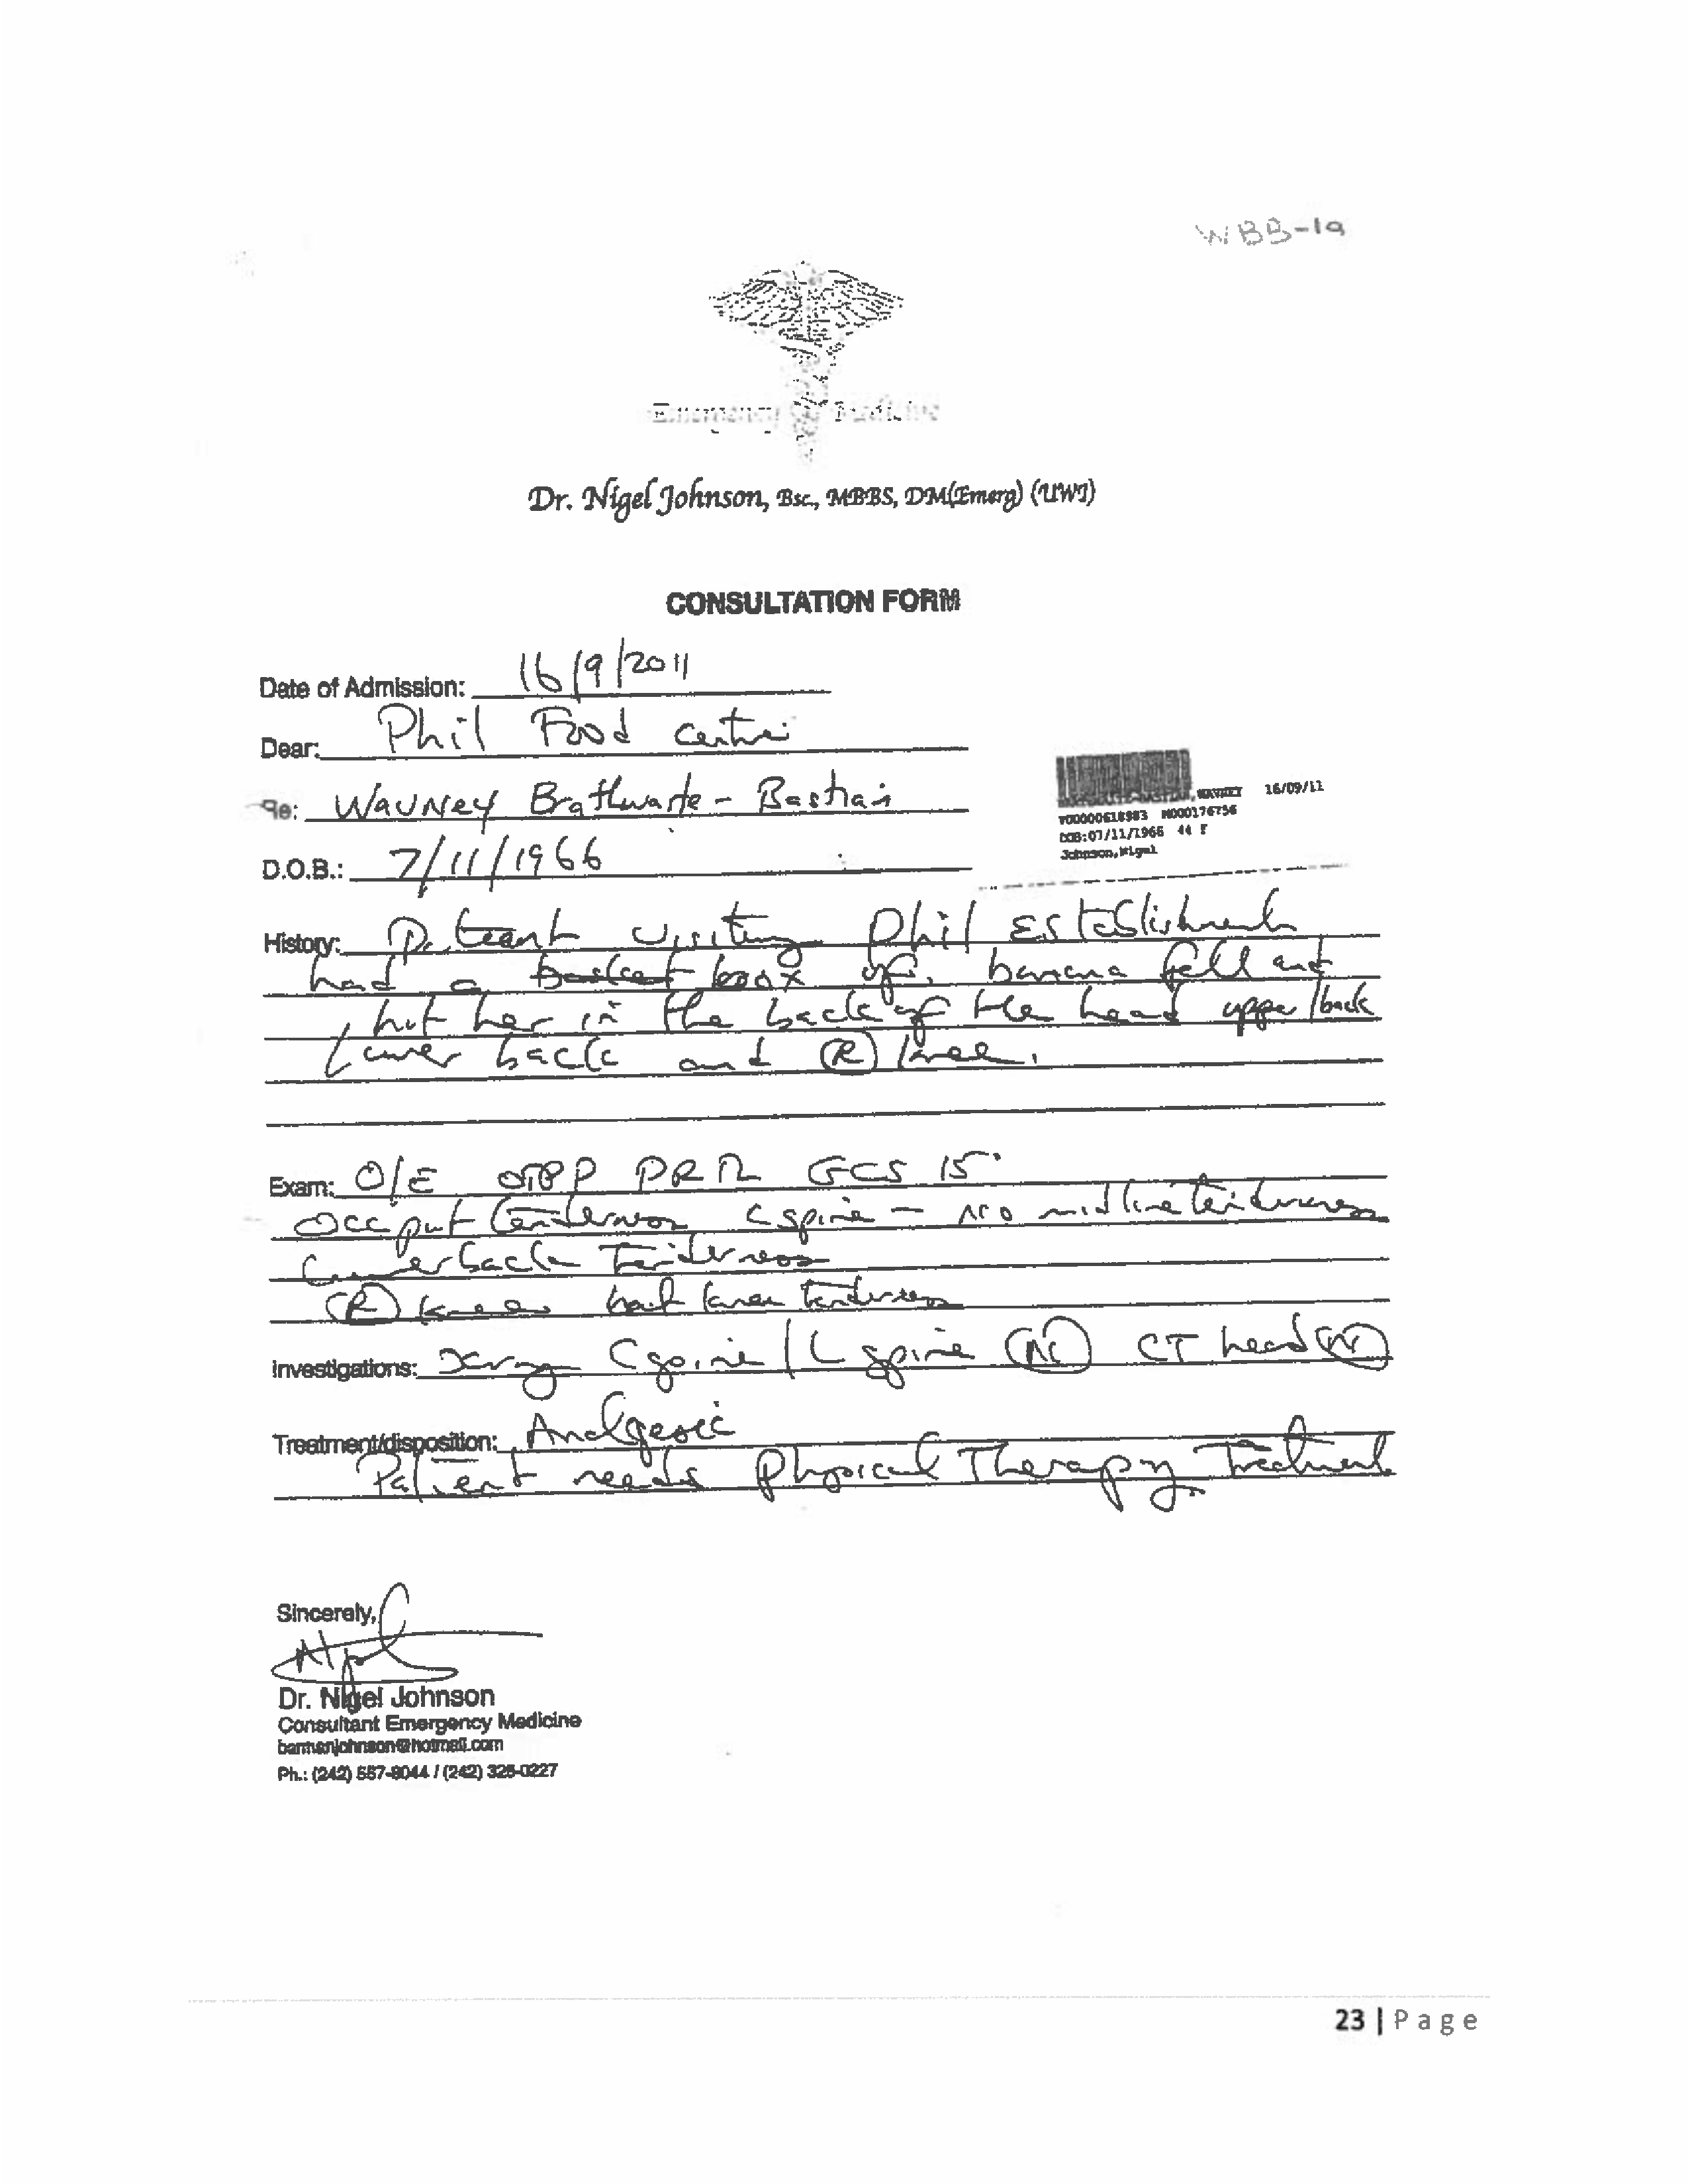 WBB-19
Emergency Medicine
Dr. Nigel Johnson, Bsc., MBBS, DM(Emerg) (UWI)
CONSULTATION FORM
Date of Admission: 16/9/2011
Dear: Phil Food
Re: Wauney Brathwaite - Bastian
16/09/11
V00000618983 M000176756
DOB:07/11/1966 44 F
Johnson,Nigel
D.O.B.: 7/11/1966
History: Patient visiting Phil Establishment
had a box of banana fell and
hit her in the back of the head upper/back
lower back and (R) knee.
Exam: O/E GCS 15
Occiput tenderness C spine - no midline tenderness
Lower back Tenderness
(R) knee tenderness
Investigations: Xray C spine / L spine (N) CT head (N)
Treatment/disposition: Analgesic
Patient needs Physical Therapy Treatment
Sincerely,
Dr. Nigel Johnson
Consultant Emergency Medicine
Ph.: (242) 557-8044 / (242) 325-0227
23 | Page